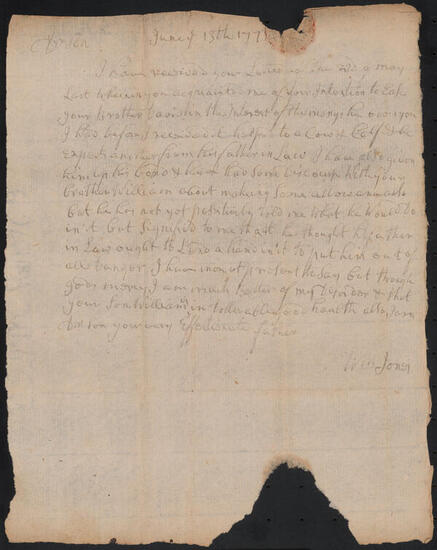 Dr Son June ye 13th 177
I have received your Letter of the 22 of may
Last wherein you acquaint me of your Intention to Ease
your Brother Davis in the Interest of the mony he owes you
I had before I received it helpt to a Cow & Calf & he
Expects any more from his father in Law I have also given
him up his bond & have had some Discourse with your
Brother William about making some allowance also
but he has not positively told me what he would do
in't but Signifed to me that he thought his father
in Law ought to Lend a hand in't to put him out of
all Danger I have no more at present to Say but through
gods mercy I am much better of my Disorder & that
your Son William is in tollerable good health also, I am
Dr Son your very Affectionate father
Wm Jones